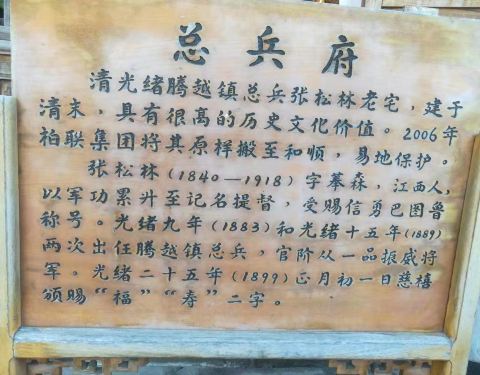 总兵府
清光绪腾越镇总兵张松林老宅，建于
清末，具有很高的历史文化价值。2006年
柏联集团将其原样搬至和顺，易地保护。
张松林(1840—1918)字摹森，江西人，
以军功累升至记名提督，受赐信勇巴图鲁
称号。光绪九年(1883)和光绪十五年(1889)
两次出任腾越镇总兵，官阶从一品振威将
军。光绪二十五年(1899)正月初一日慈禧
颁赐“福”“寿”二字。